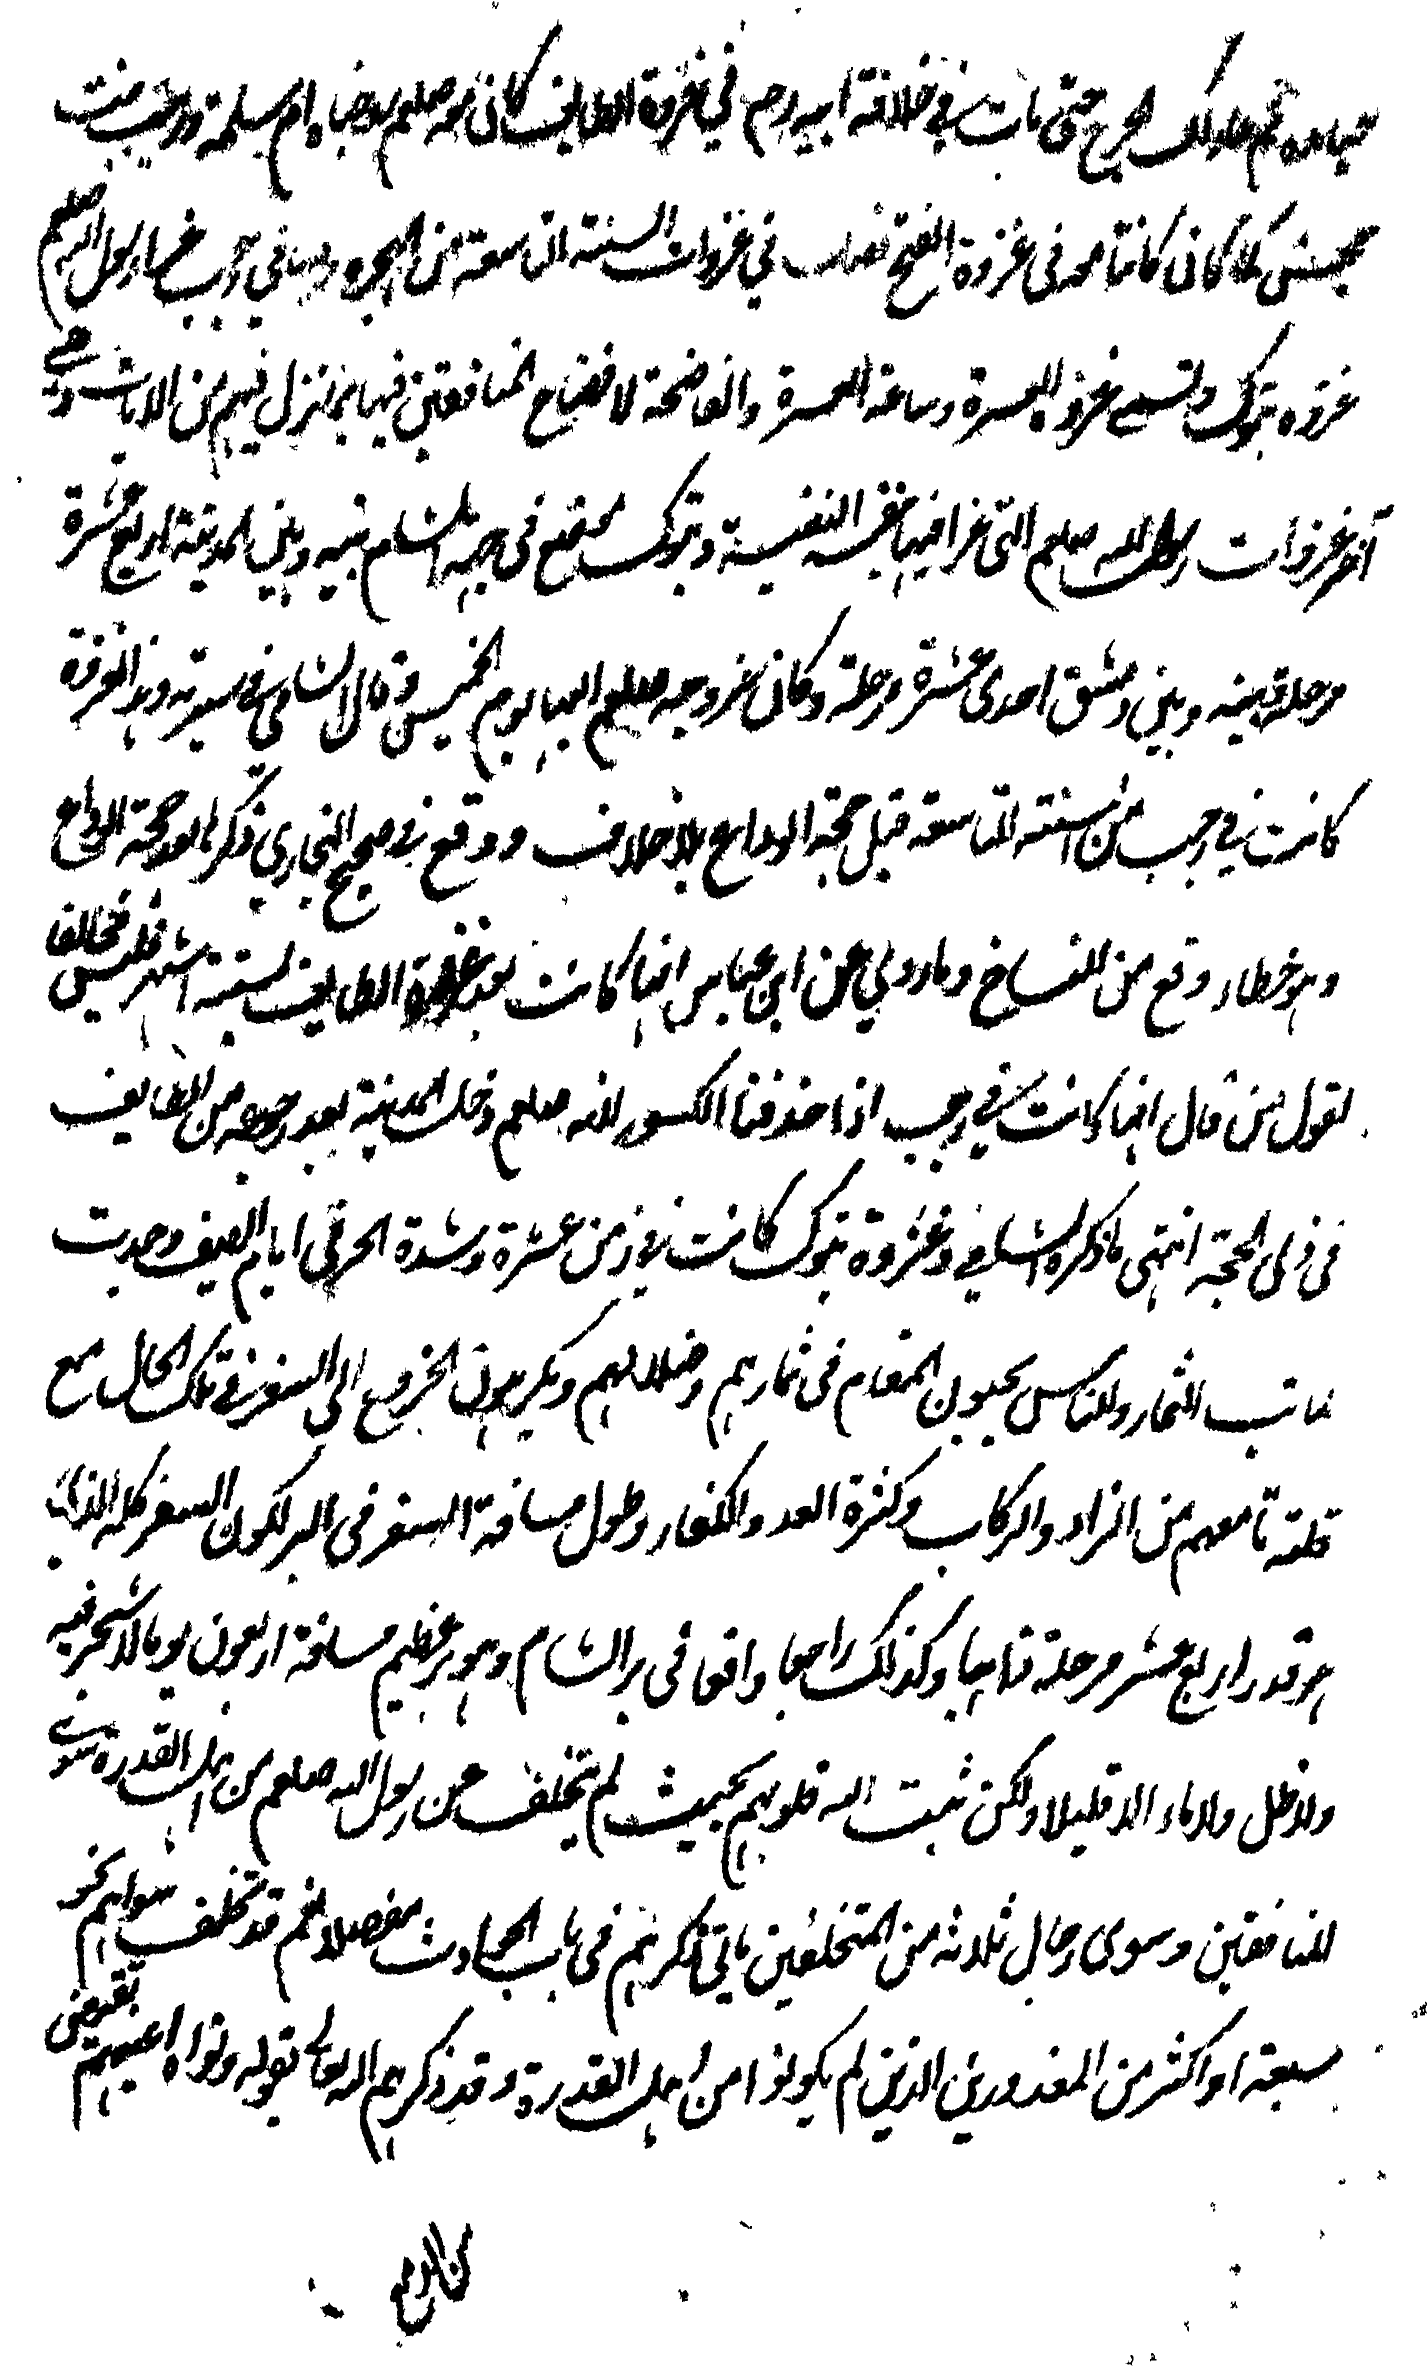 ذلك الجرح حتى مات في خلافة ابيه وفي غزوة الطايف كان معه صلعم من نسائه ام سلمة وزينب بنت
جحش كما كان كانتا معه في غزوة الفتح فصل في غزوات السنة التاسعة من الهجرة وفيها في رجب غزا رسول الله صلعم
غزوه تبوك وتسمى غزوة العسرة وساعة العسرة والفاضحة لافتضاح المنافقين فيها بما نزل فيهم من الايات وهي
آخر غزوات رسول الله صلعم التي غزا فيها بنفسه النفيسة وتبوك موضع في جهة الشام بينه وبين المدينة اربع عشرة
مرحلة بينه وبين دمشق احدى عشرة مرحلة وكان خروجه صلعم اليها يوم الخميس وقال الشامي في سيرته وهذه الغزوة
كانت في رجب من السنة التاسعة قبل حجة الوداع بلا خلاف ووقع في صحيح البخاري ذكرها بعد حجة الوداع
وهو خطاء وقع من النساخ وما روي عن ابن عباس انها كانت بعد غزوة الطايف بستة اشهر فليس مخالفا
لقول من قال انها كانت في رجب اذا حذفنا الكسور لانه صلعم دخل المدينة بعد رجوعه من الطايف
في ذي الحجة انتهى ما ذكره الشامي وغزوة تبوك كانت في زمن عسرة وشدة الحر في ايام الصيف وحدث
ثمار الثمار والناس يحبون المقام في ثمارهم وضلالهم ويكرهون الخروج الى السفر في تلك الحال مع
قلة ما معهم من الزاد والركاب وكثرة العدو الكفار وطول مسافة السفر في البر لكون السفر كله
هو قدر اربع عشر مرحلة ذاهبا وكذلك راجعا واقعا في بر الشام وهو بر عظيم مسافة اربعون يوما لا شجر فيه
ولا ظل ولا ماء الا قليلا ولكن ثبت الله قلوبهم بحيث لم يتخلف عن رسول الله صلعم من اهل القدرة سوى
المنافقين وسوى رجال ثلاثة من المتخلفين ياتي ذكرهم في باب الحوادث مفصلا نعم قد تخلف سواهم نحو
سبعة او اكثر من المعذورين الذين لم يكونوا من اهل القدرة وقد ذكرهم الله تعالى بقوله وتولوا واعينهم تفيض
من الدمع